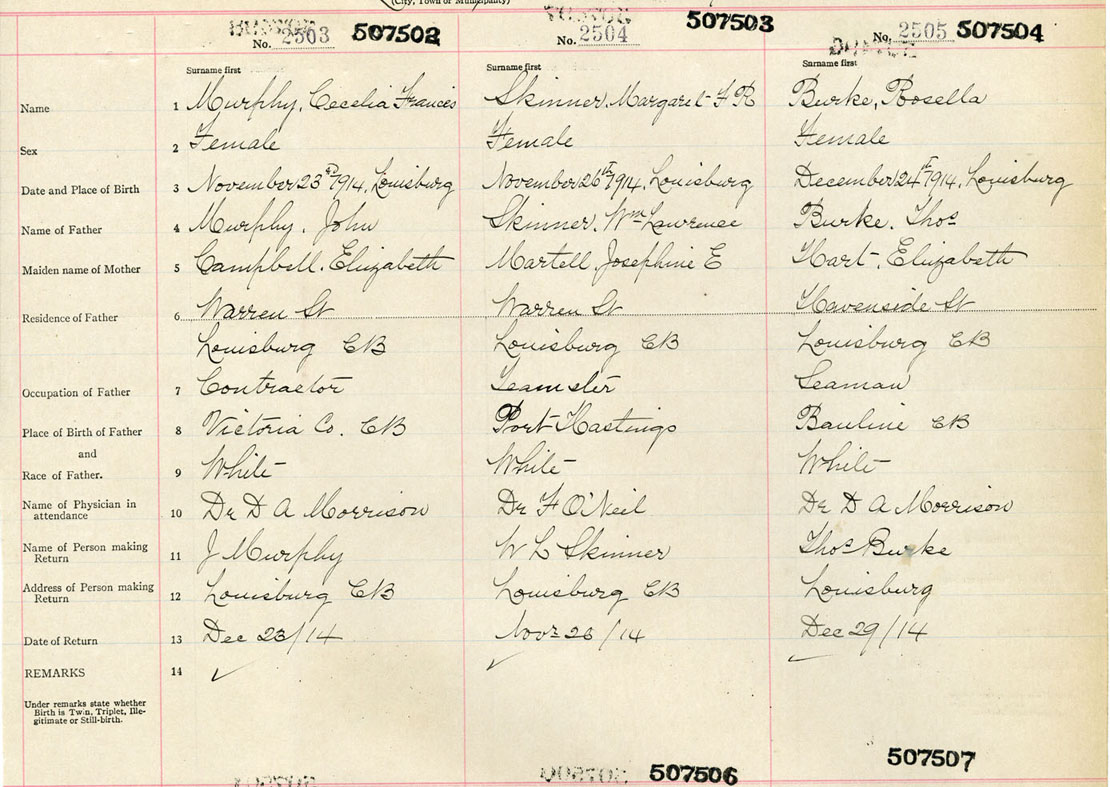 (City, Town or Municipality)
No. 2503 507502
No. 2504 507503
No. 2505 507504
Surname first Surname first Surname first
Name 1 Murphy, Cecelia Frances Skinner, Margaret F R Burke, Rosella
Sex 2 Female Female Female
Date and Place of Birth 3 November 23rd 1914, Louisburg November 26th 1914, Louisburg December 24th 1914, Louisburg
Name of Father 4 Murphy, John Skinner, Wm Lawrence Burke, Thos
Maiden name of Mother 5 Campbell, Elizabeth Martell, Josephine E Hart, Elizabeth
Residence of Father 6 Warren St Warren St Havenside St
Louisburg CB Louisburg CB Louisburg CB
Occupation of Father 7 Contractor Teamster Seaman
Place of Birth of Father 8 Victoria Co. CB Port Hastings Bauline CB
and
Race of Father. 9 White White White
Name of Physician in attendance 10 Dr D A Morrison Dr F O'Neil Dr D A Morrison
Name of Person making Return 11 J Murphy W L Skinner Thos Burke
Address of Person making Return 12 Louisburg CB Louisburg CB Louisburg
Date of Return 13 Dec 23/14 Novr 26/14 Dec 29/14
REMARKS 14 ✓ ✓ ✓
Under remarks state whether
Birth is Twin, Triplet, Ille-
gitimate or Still-birth.
507506 507507